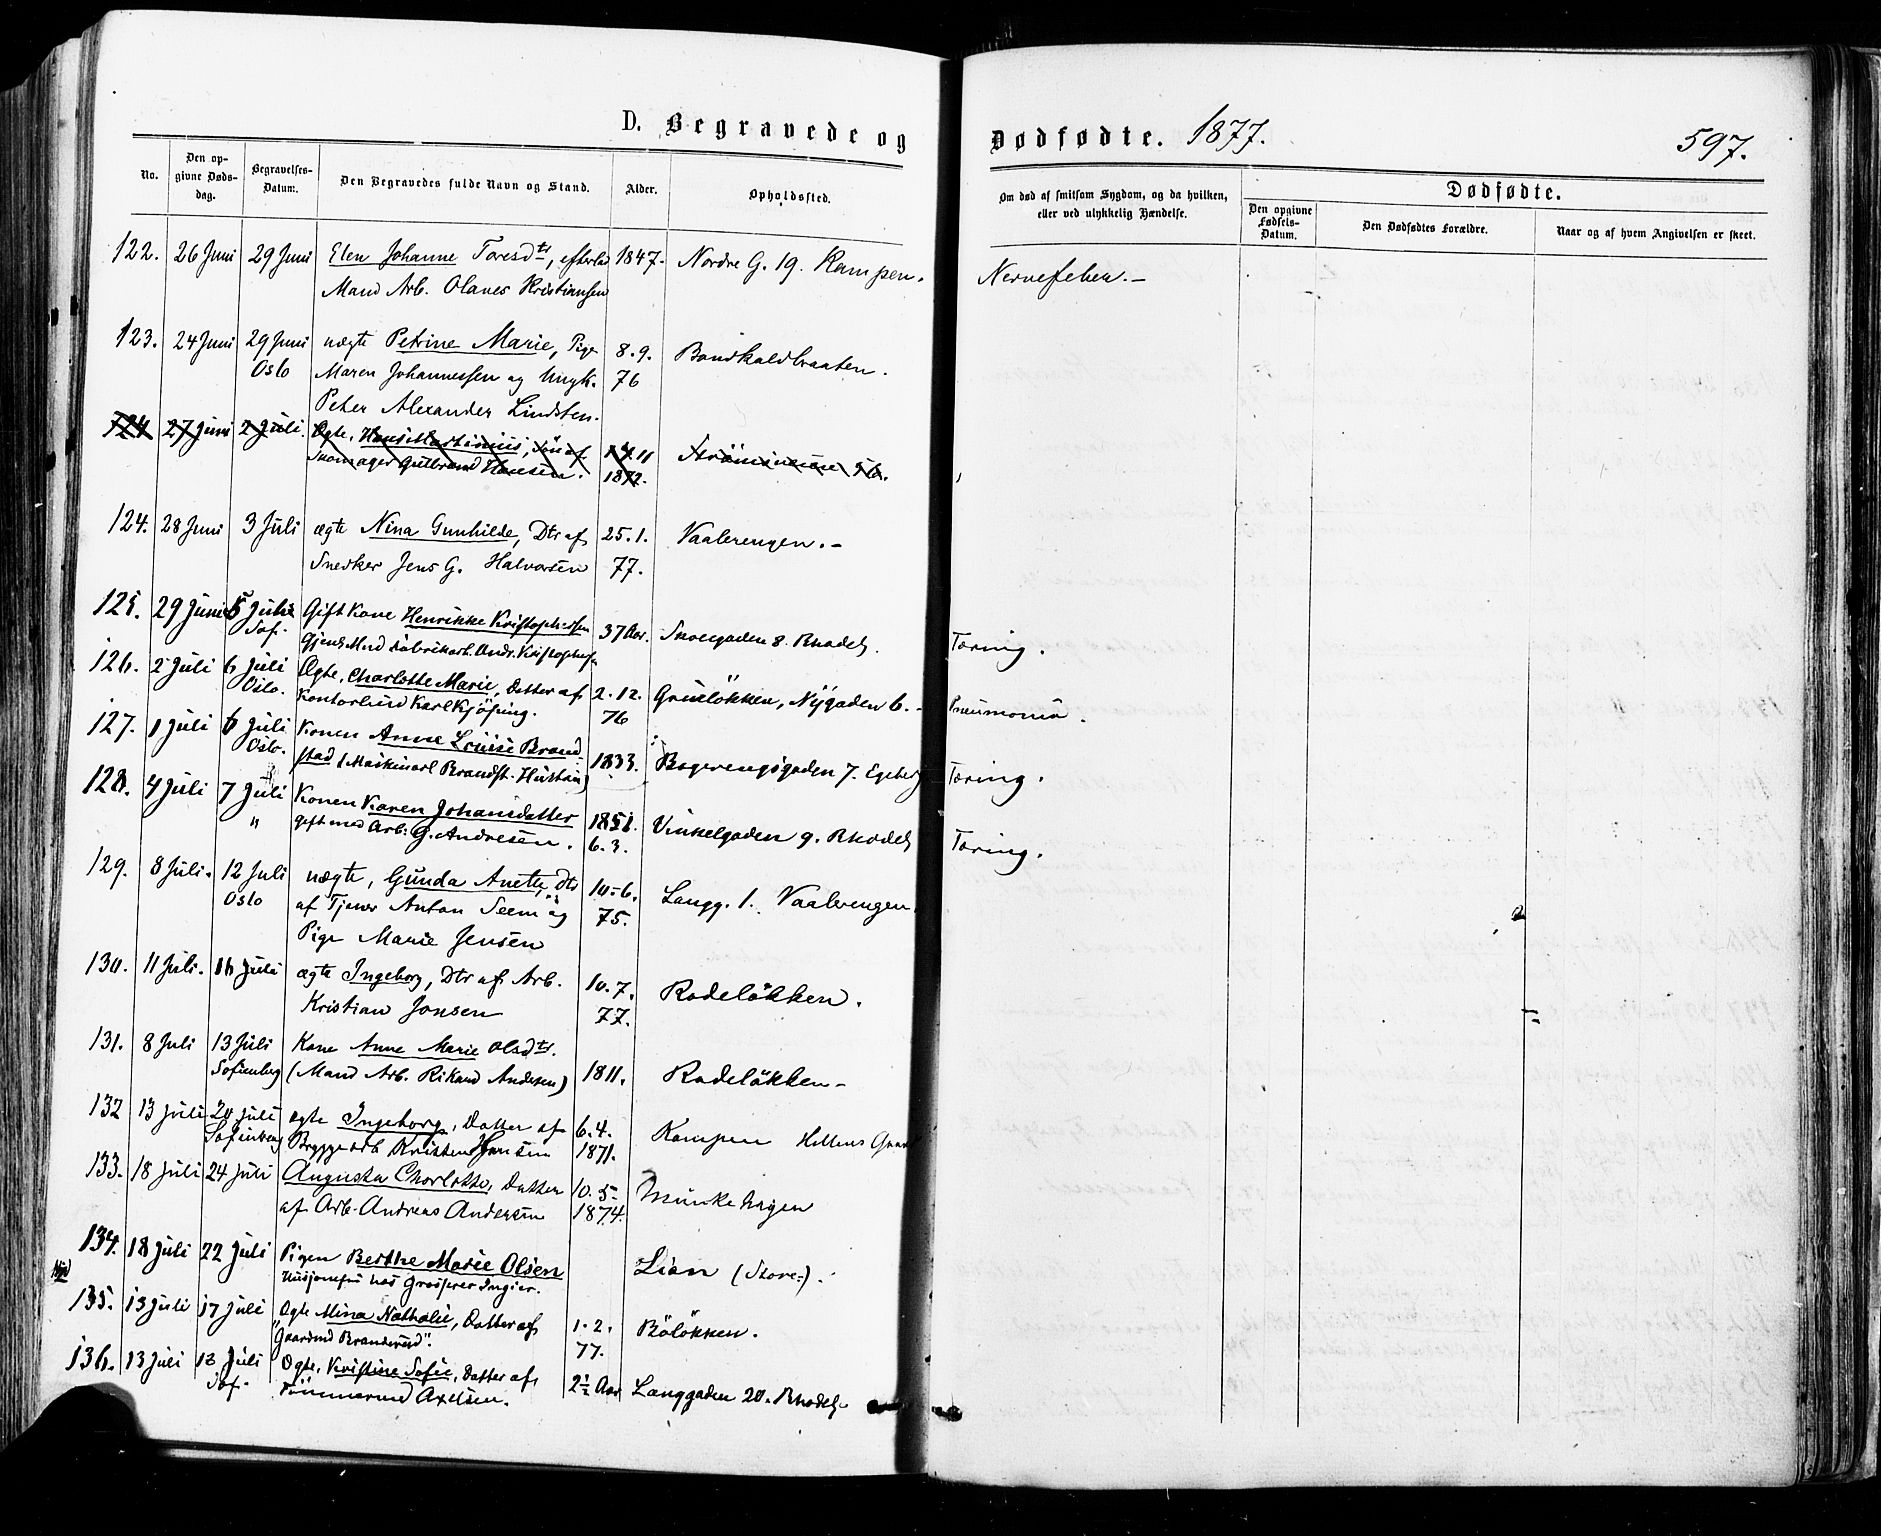 D. Begravede og Dødfødte. 1877. 597.
No. Den opgivne Dødsdag. Begravelses-Datum. Den Begravedes fulde Navn og Stand. Alder. Opholdssted. Om død af smitsom Sygdom, og da hvilken, eller ved ulykkelig Hændelse. Dødfødte.
Den opgivne Fødsels-Datum. Den Dødfødtes Forældre. Naar og af hvem Angivelsen er skeet.
122. 26 Juni 29 Juni Elen Johanne Toresdtr, efterlad 1847. Nordre G. 19. Kampen. Nervefeber.-
Mand Arb. Olaves Kristiansen
123. 24 Juni 29 Juni uægte Petrine Marie, Pige 8.9. Bandkaldbraaten.
Oslo Maren Johannessen og Ungk. 76
Peter Alexander Lindsten.
124. 27 Juni 2 Juli. Ægte, Hans Martinius, Søn af 14.11 Strömsveien 56.
Skomager Gulbrand Hansen. 1872.
124. 28 Juni 3 Juli ægte Nina Gunhilde, Dtr af 25.1. Vaalerengen.-
Snedker Jens G. Halvorsen 77.
125. 29 Juni 5 Juli Gift Kone Henrikke Kristophersen 37 Aar. Skoegaden 8. Rhodel. Tæring.
Sof. Gjenl. Md Fabrikarb. Andr. Kristophers.
126. 2 Juli 6 Juli Ægte, Charlotte Marie, Datter af 2.12. Grünløkken, Nÿgaden 6.- Pneumonia.
Oslo. Kontorbud Karl Kjöfring. 76
127. 1 Juli 6 Juli Konen Anne Louise Brand- 1833. Bøgerengsgaden 7. Egeberg Tæring.
Oslo. stad (Maskinarb Brandst. Hustru)
128. 4 Juli 7 Juli Konen Karen Johansdatter 1851. Vinkelgaden 9. Rhodel Tæring.
" gift med Arb. G. Andresen. 6.3.
129. 8 Juli. 12 Juli uægte, Gunda Anette, Dtr 10-6. Langg. 1. Vaalerengen.
Oslo af Tjener Anton Seem og 75.
Pige Marie Jensen
130. 11 Juli. 16 Juli ægte Ingeborg, Dtr af Arb. 10.7. Rodeløkken.
Kristian Jonsen 77.
131. 8 Juli 13 Juli Kone Anne Marie Olsdtr. 1811. Rodeløkken-
Sofienberg (Mand Arb. Rikard Andersen)
132 13 Juli 20 Juli ægte Ingeborg, Datter af 6.4. Kampen Hellens Gaard
Sofienberg Bryggearb Kristen Hansen 1871.
133. 18 Juli 24 Juli Augusta Charlotte, Datter 10.5- Munkehagen
af Arb. Andreas Andersen 1874.
134. 18 Juli 22 Juli Pigen Berthe Marie Olsen Lian (Store-).
Husjomfru hos Grosserer Ingier.
135. 13 Juli 17 Juli "Ægte Mina Nathalie, Datter af 1.2. Bölökken.
Gaardmd Branderud". 77.
136. 13 Juli 18 Juli Ægte, Kristine Sofie, Datter af 2½ Aar Langgaden 20. Rhodel-
Sof. Tømmermd Axelsen.